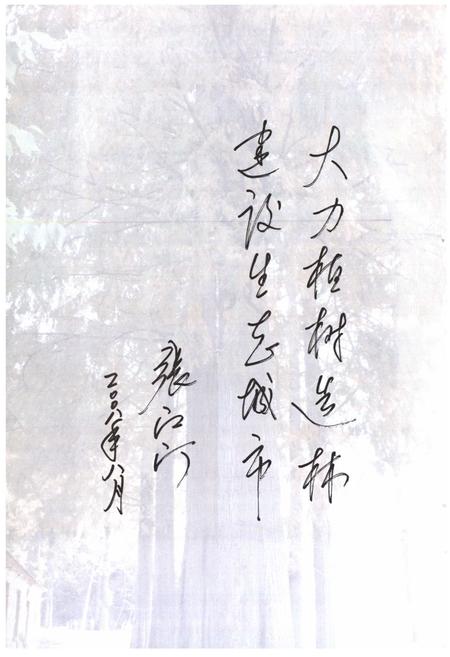 大力植树造林
建设生态城市
張江河
二〇〇八年八月